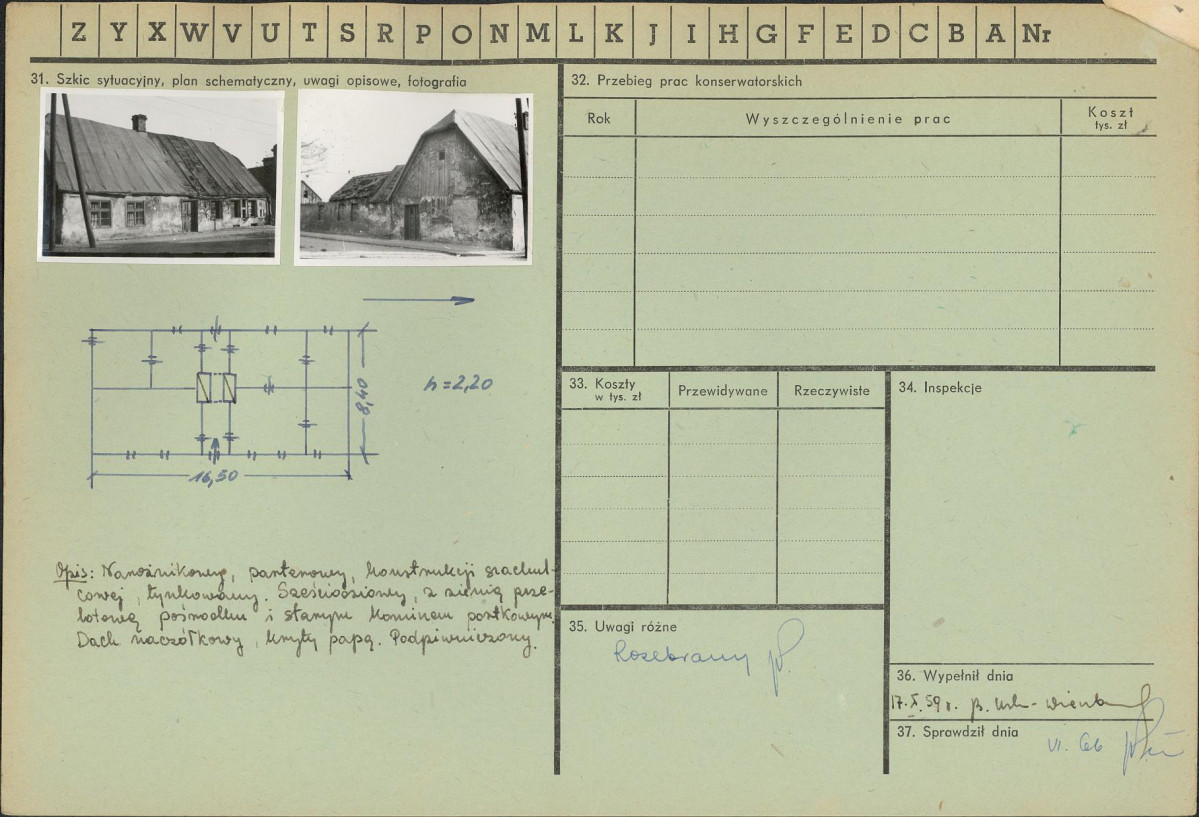 Z Y X W V U T S R P O N M L K J I H G F E D C B A Nr
31. Szkic sytuacyjny, plan schematyczny, uwagi opisowe, fotografia
h=2,20
8,40
16,50
Opis: Narożnikowy, parterowy, konstrukcji szachul-
cowej, tynkowany. Sześcioosiowy, z sienią prze-
lotową pośrodku i starym kominem
Dach naczółkowy, kryty papą. Podpiwniczony.
32. Przebieg prac konserwatorskich
Rok
Wyszczególnienie prac
Koszt
tys. zł
33. Koszty
w tys. zł
Przewidywane
Rzeczywiste
34. Inspekcje
35. Uwagi różne
Rozebrany
36. Wypełnił dnia
17.X.59 r.
37. Sprawdził dnia
VI. 66